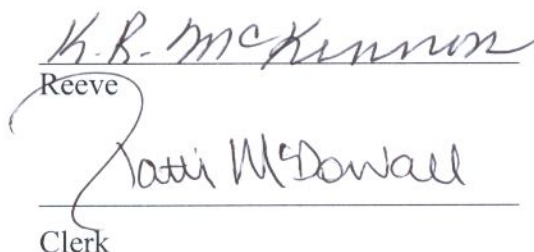 K.R. McKinnon
Reeve
Patti McDowall
Clerk